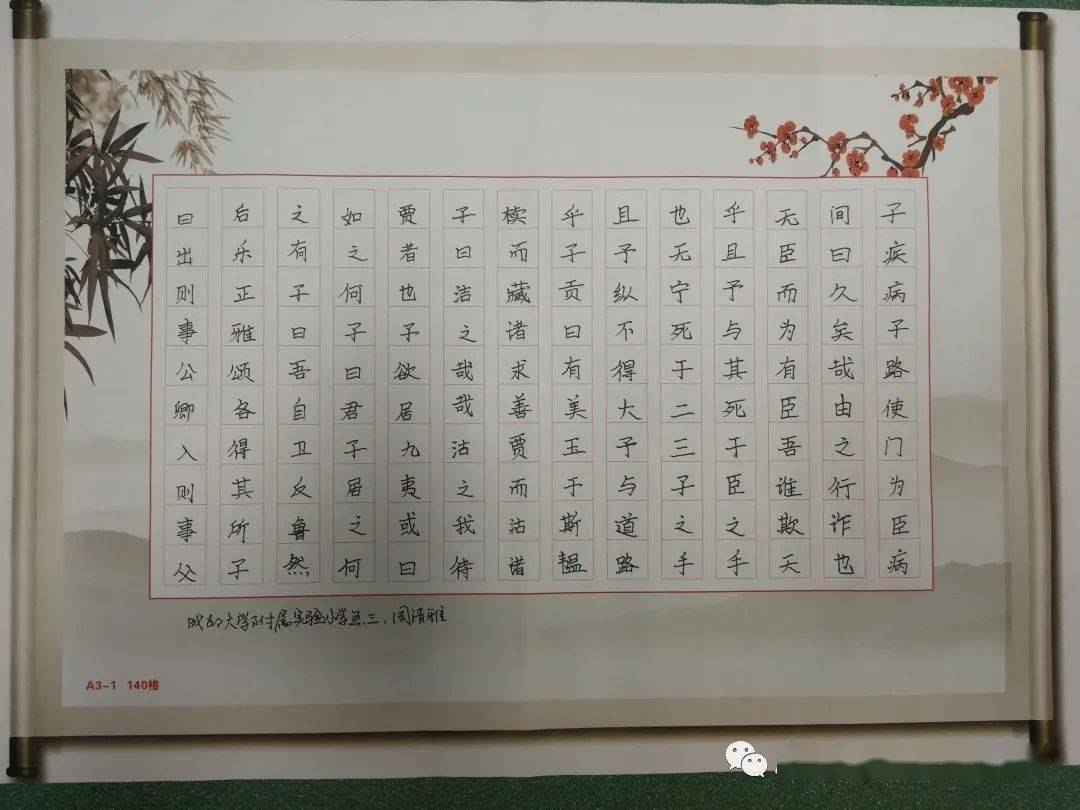 子疾病子路使门为臣病
间曰久矣哉由之行诈也
无臣而为有臣吾谁欺天
乎且予与其死于臣之手
也无宁死于二三子之手
且予纵不得大予与道路
乎子贡曰有美玉于斯韫
椟而藏诸求善贾而沽诸
子曰洁之哉哉沽之我待
贾者也子欲居九夷或曰
如之何子曰君子居之何
之有子曰吾自卫反鲁然
后乐正雅颂各得其所子
曰出则事公卿入则事父
成都大学附属实验小学五.三.周清雅
A3-1 140格